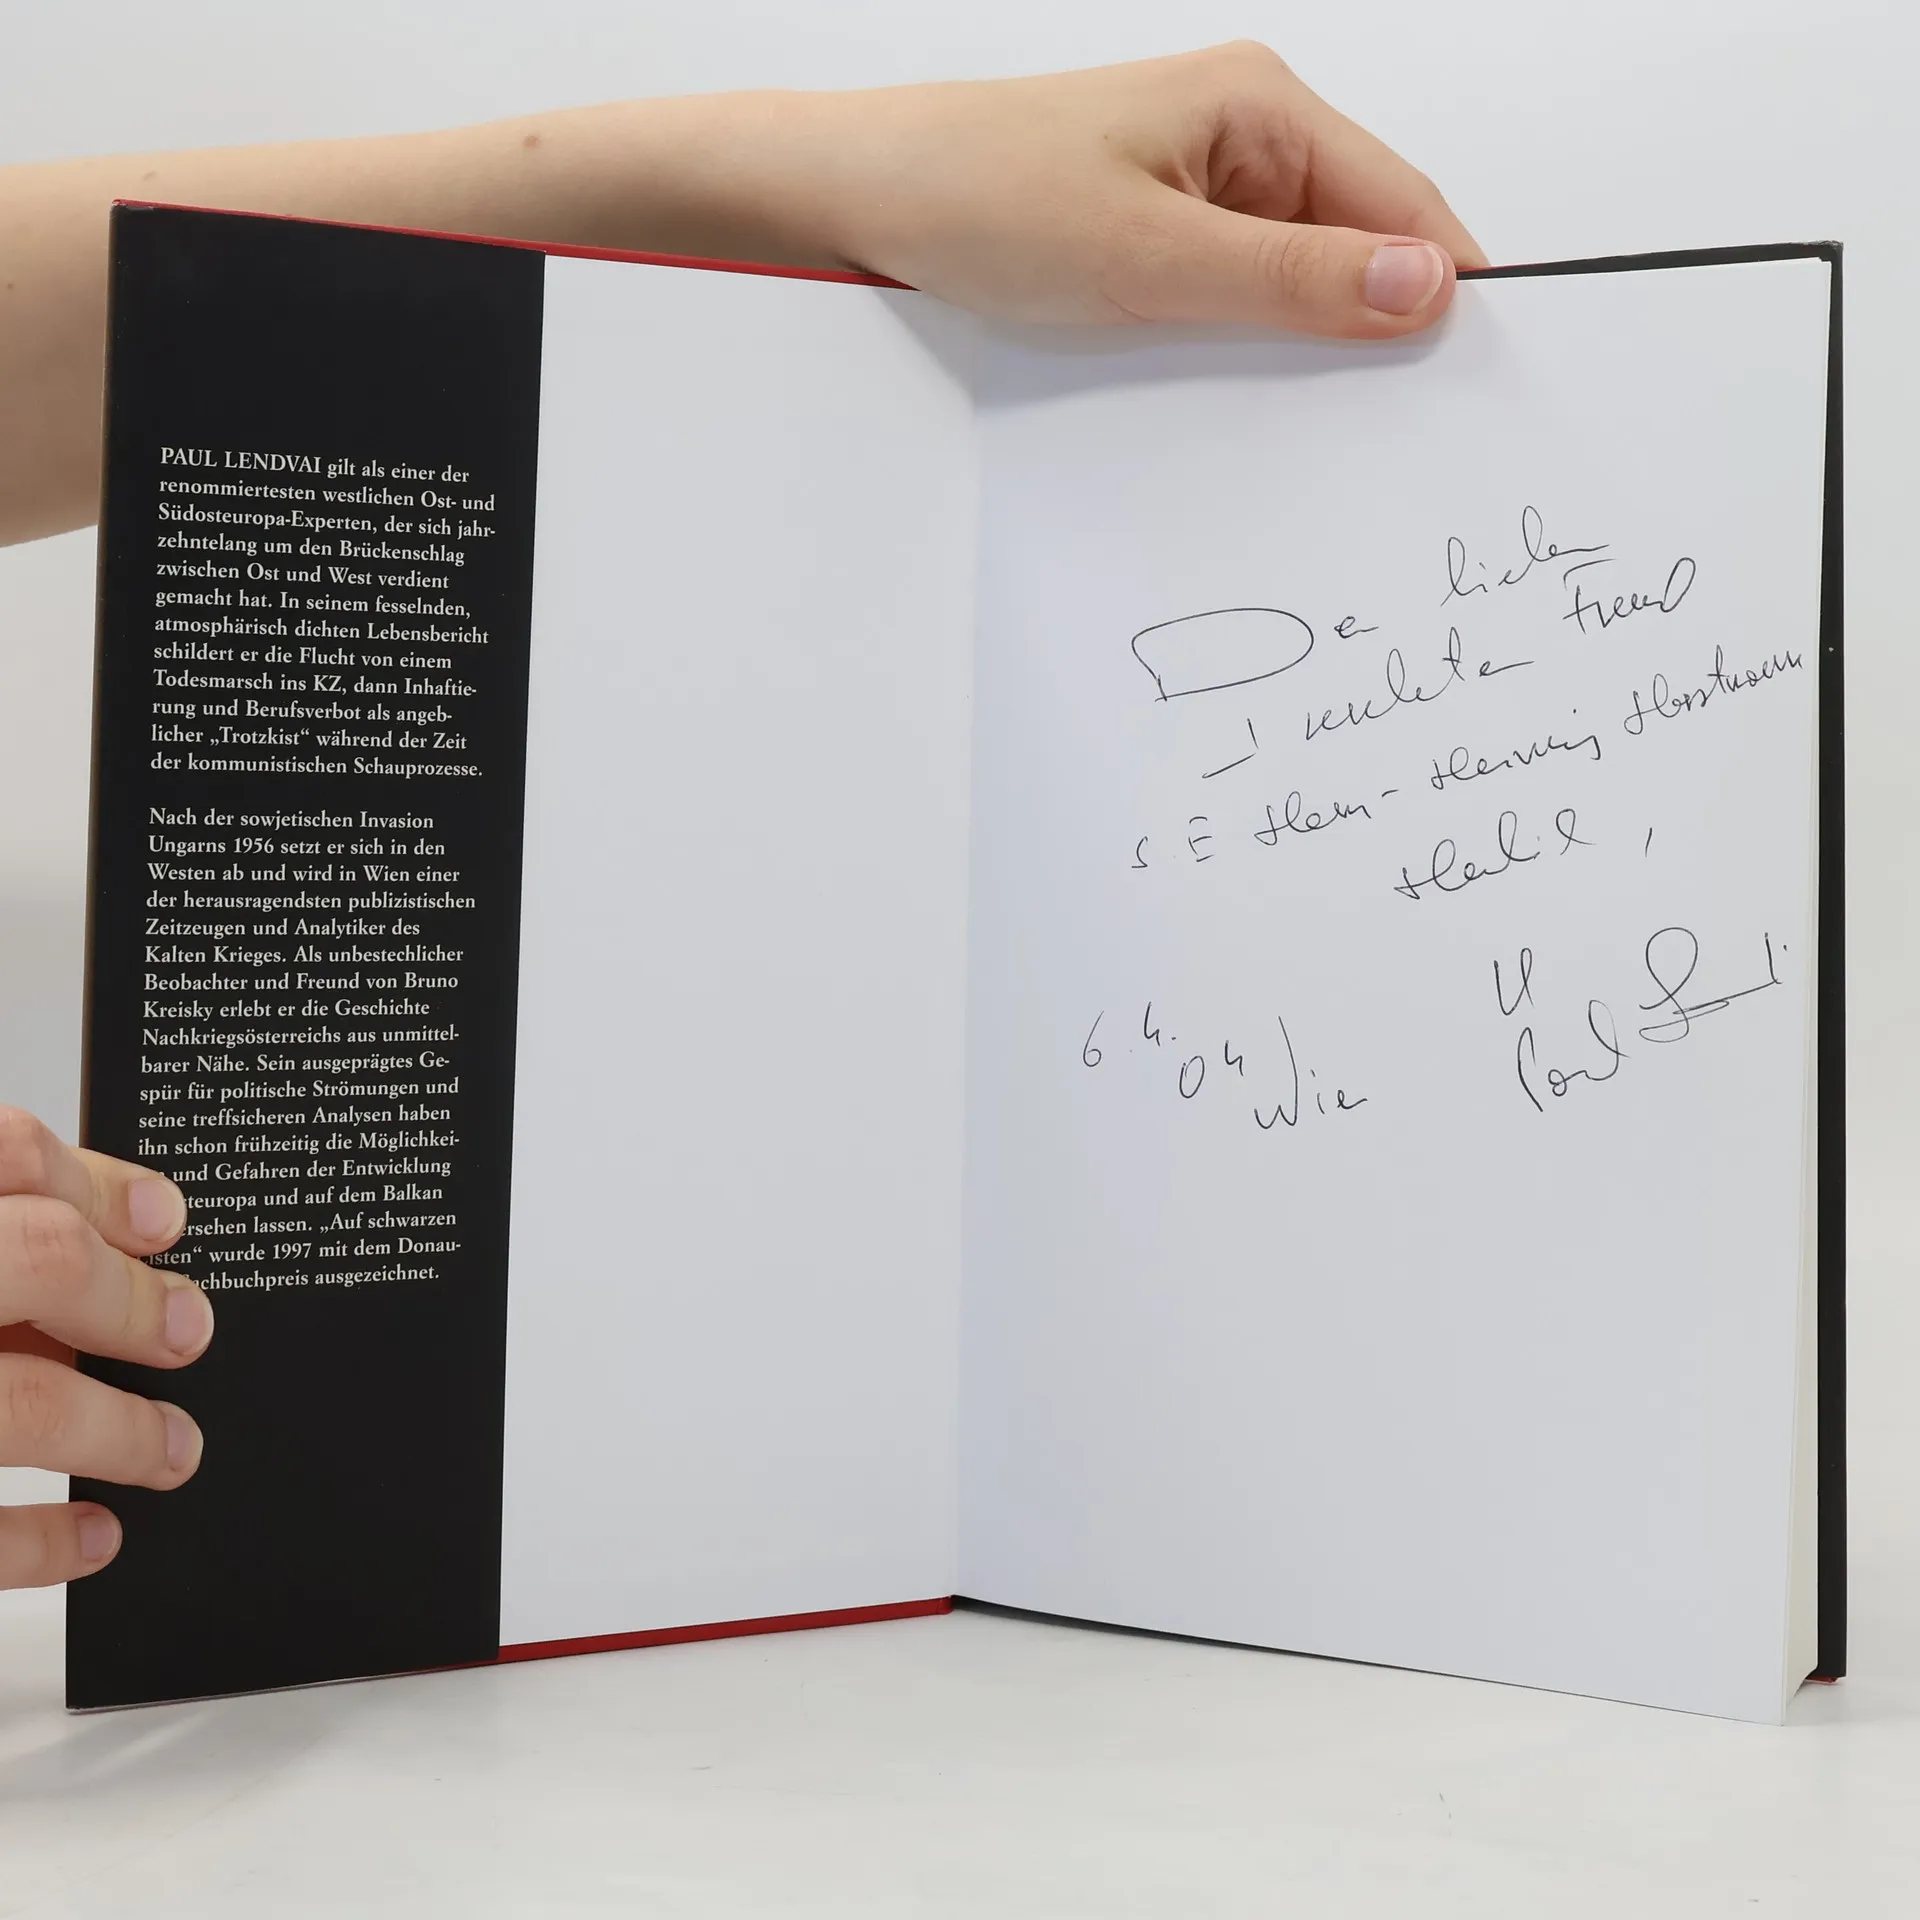 PAUL LENDVAI gilt als einer der
renommiertesten westlichen Ost- und
Südosteuropa-Experten, der sich jahr-
zehntelang um den Brückenschlag
zwischen Ost und West verdient
gemacht hat. In seinem fesselnden,
atmosphärisch dichten Lebensbericht
schildert er die Flucht von einem
Todesmarsch ins KZ, dann Inhaftie-
rung und Berufsverbot als angeb-
licher „Trotzkist“ während der Zeit
der kommunistischen Schauprozesse.
Nach der sowjetischen Invasion
Ungarns 1956 setzt er sich in den
Westen ab und wird in Wien einer
der herausragendsten publizistischen
Zeitzeugen und Analytiker des
Kalten Krieges. Als unbestechlicher
Beobachter und Freund von Bruno
Kreisky erlebt er die Geschichte
Nachkriegsösterreichs aus unmittel-
barer Nähe. Sein ausgeprägtes Ge-
spür für politische Strömungen und
seine treffsicheren Analysen haben
ihn schon frühzeitig die Möglichkei-
und Gefahren der Entwicklung
teuropa und auf dem Balkan
ersehen lassen. „Auf schwarzen
isten“ wurde 1997 mit dem Donau-
achbuchpreis ausgezeichnet.
Dem lieben
Freund
S E Hans-Henning Horstmann
Herzlich,
Paul
6.4.
04
Wien